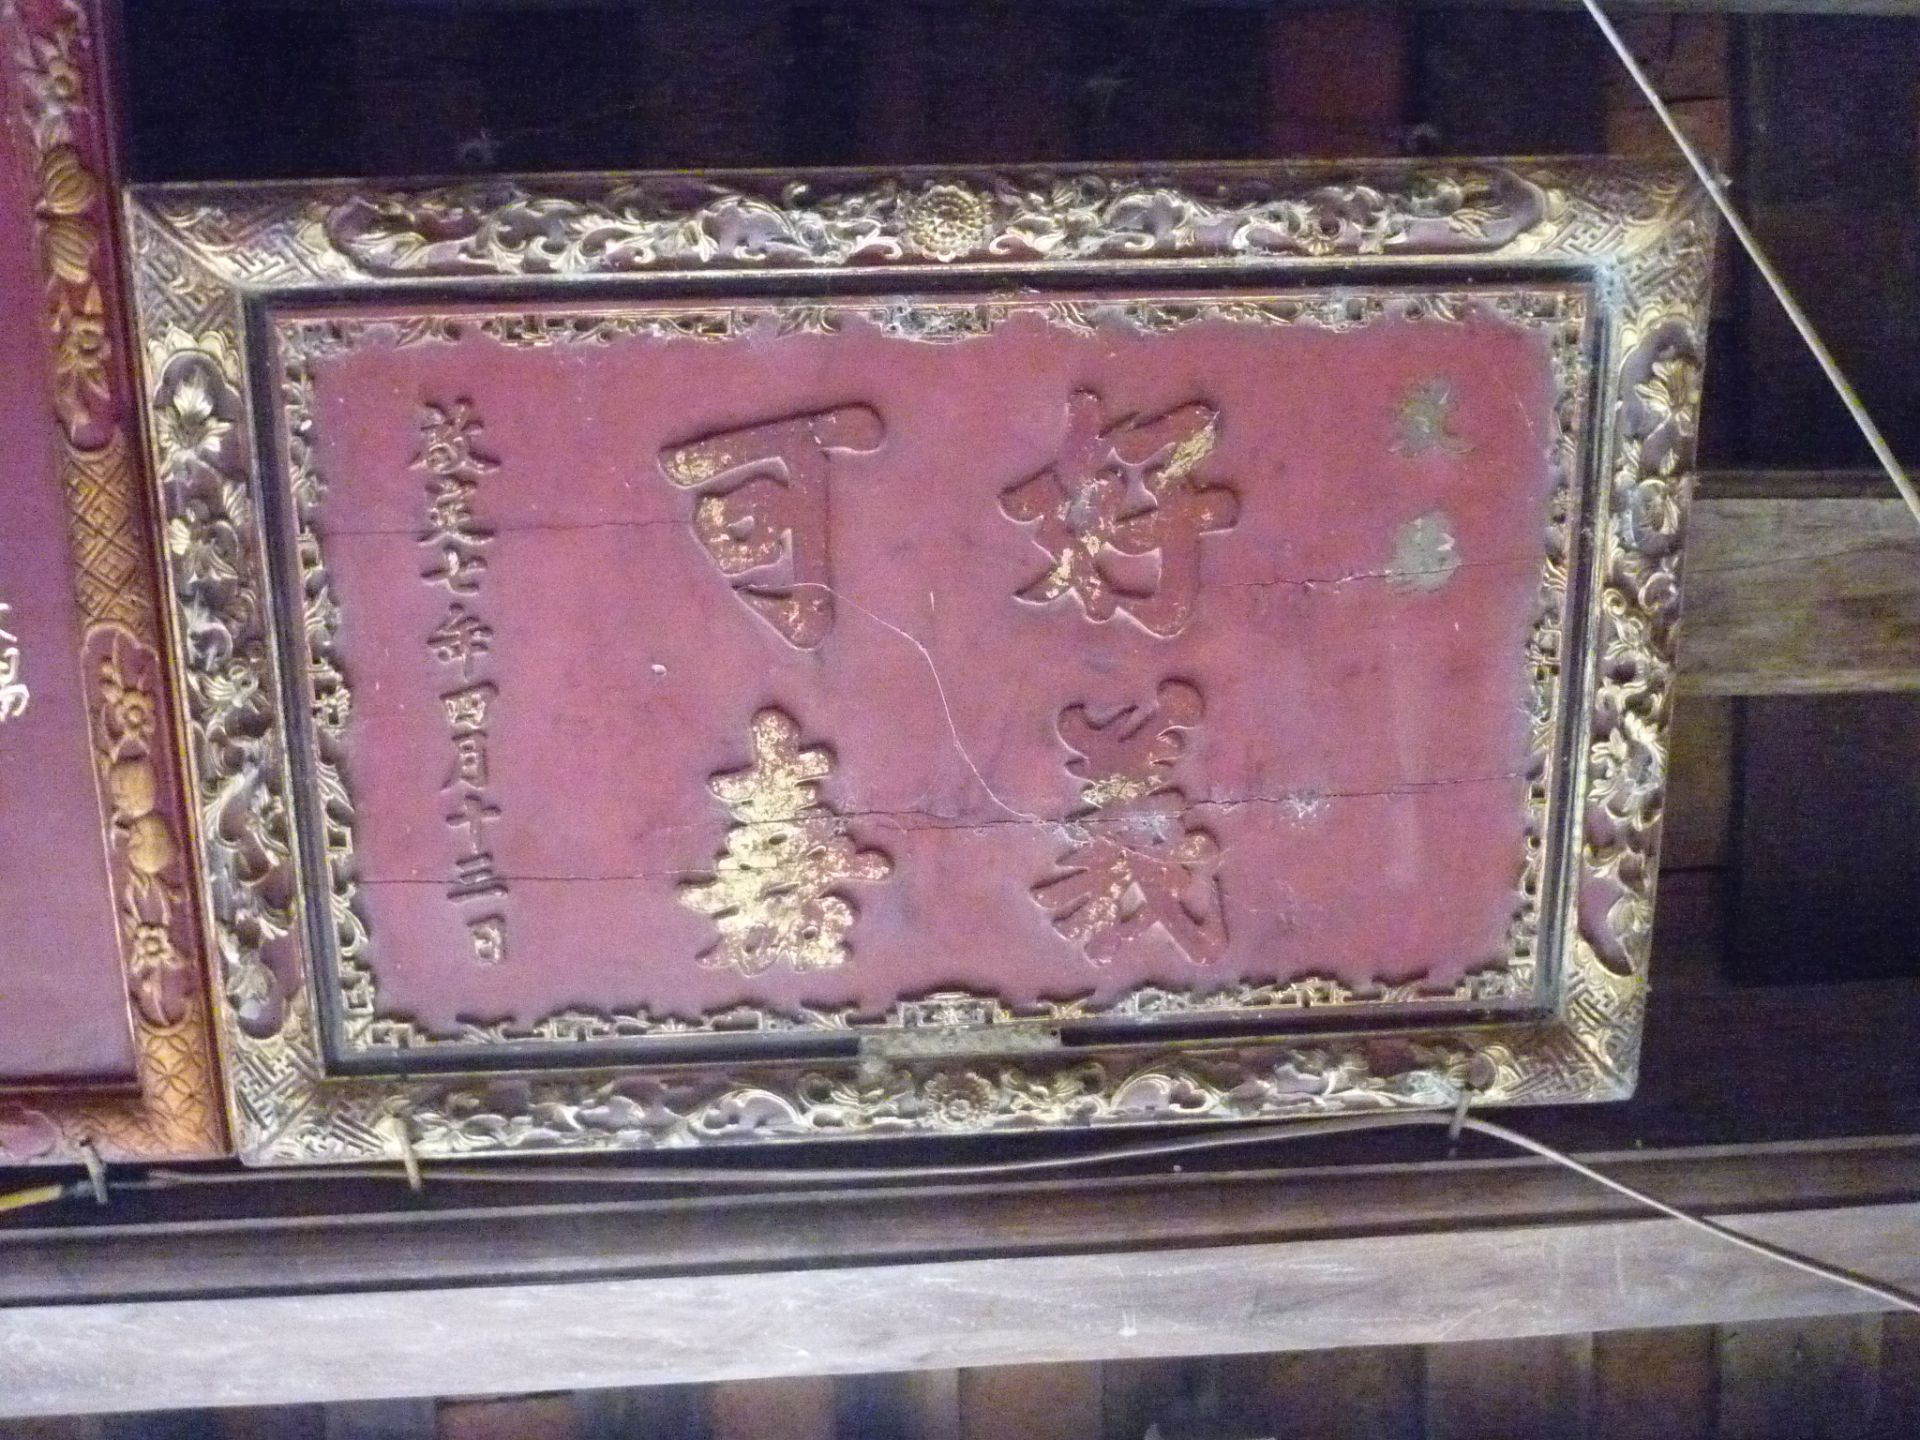 好義
可嘉
啟定七年四月十三日